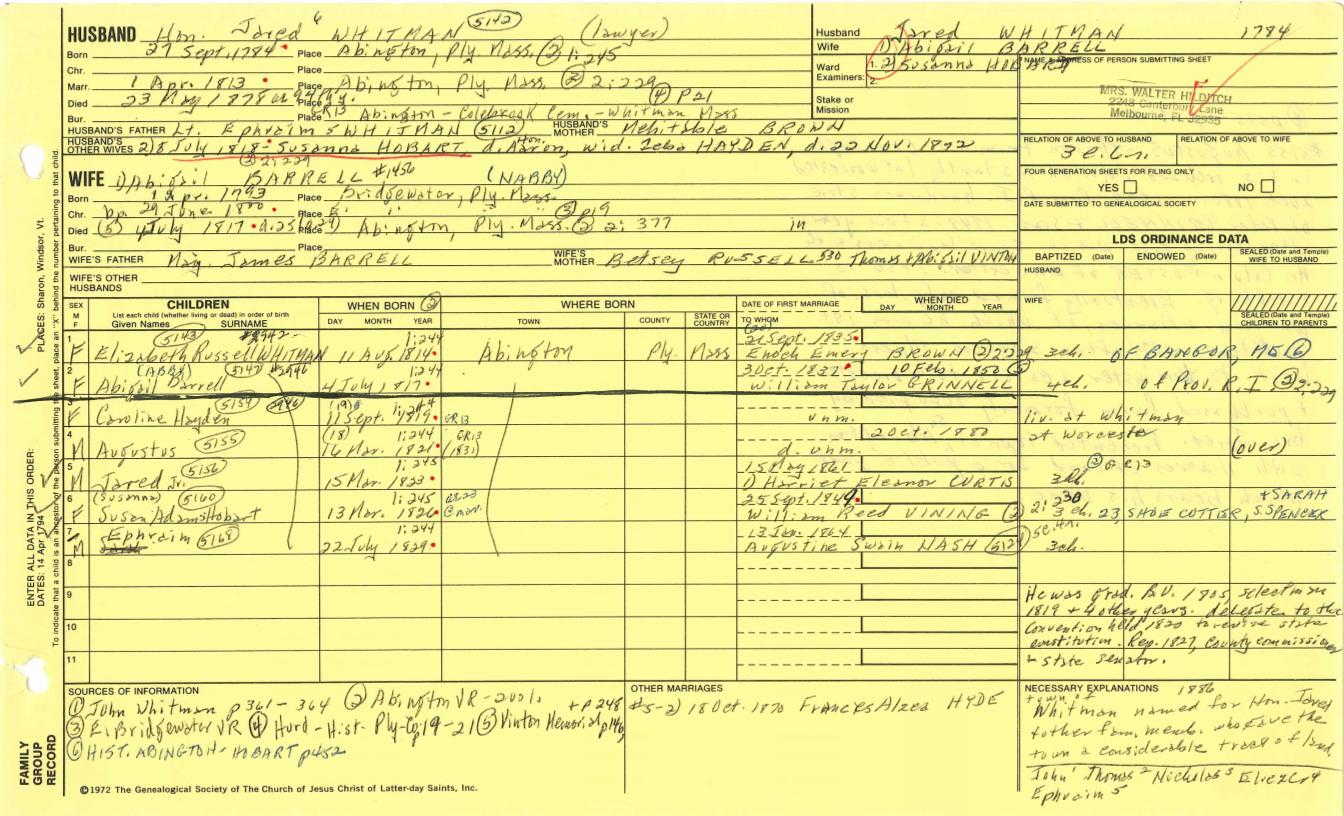 HUSBAND Hon. Jared 6 WHITMAN 5142 (lawyer)
Born 27 Sept. 1784 Place Abington, Ply. Mass. ② 1:245
Chr. Place
Marr. 1 Apr. 1813 Place Abington, Ply. Mass. ② 2:229
Died 23 May 1878 Place ④ P21
Bur. Place GR13 Abington - Colebrook Cem. - Whitman Mass
HUSBAND'S FATHER Lt. Ephraim 5 WHITMAN 5112 HUSBAND'S MOTHER Mehitable BROWN
HUSBAND'S OTHER WIVES 2) 8 July, 1818 - Susanna HOBART, d. Hon. Aaron, wid. Zeba HAYDEN, d. 22 Nov. 1872
② 2:229
Husband Jared WHITMAN 1784
Wife 1) Abigail BARRELL
Ward Examiners: 1. 2) Susanna HOBART
2.
Stake or Mission
NAME & ADDRESS OF PERSON SUBMITTING SHEET
MRS. WALTER HILDITCH
2248 Canterbury Lane
Melbourne, FL 32935
RELATION OF ABOVE TO HUSBAND RELATION OF ABOVE TO WIFE
FOUR GENERATION SHEETS FOR FILING ONLY
YES NO
DATE SUBMITTED TO GENEALOGICAL SOCIETY
WIFE 1) Abigail BARRELL #1456 (NABBY)
Born 1 Apr. 1793 Place Bridgewater, Ply. Mass.
Chr. bp 29 June 1800 Place E. " " ③ p19
Died ⑤ 4 July 1817 Place Abington, Ply. Mass. ② 2:377 in
Bur. Place
WIFE'S FATHER Maj. James BARRELL WIFE'S MOTHER Betsey RUSSELL 530 Thomas + Abigail VINTON
WIFE'S OTHER HUSBANDS
LDS ORDINANCE DATA
BAPTIZED (Date) ENDOWED (Date) SEALED (Date and Temple) WIFE TO HUSBAND
HUSBAND
WIFE
SEALED (Date and Temple) CHILDREN TO PARENTS
SEX M F CHILDREN List each child (whether living or dead) in order of birth Given Names SURNAME
WHEN BORN ② DAY MONTH YEAR
WHERE BORN TOWN COUNTY STATE OR COUNTRY
DATE OF FIRST MARRIAGE TO WHOM
WHEN DIED DAY MONTH YEAR
1 5143 1:244 21 Sept. 1835
F Elizabeth Russell WHITMAN 11 Aug. 1814 Abington Ply. Mass Enoch Emery BROWN ② 3ch. OF BANGOR, ME ⑥
2 (ABBY) 5147 1:244 3 Oct. 1837 10 Feb. 1850
F Abigail Barrell 4 July, 1817 William Taylor GRINNELL 4ch. of Prov. R.I ② 2:229
3 5154 1:244
F Caroline Hayden 11 Sept. 1819 GR13 unm. liv. at Whitman
4 5155 (18) 1:244 GR13 2 Oct. 1880 at Worcester
M Augustus 16 Mar. 1821 (1831) d. unm. (over)
5 5156 1:245 15 May 1861
M Jared Jr. 15 Mar. 1823 1) Harriet Eleanor CURTIS 3ch.
6 (Susanna) 5160 1:245 25 Sept. 1849 2:230 + SARAH
F Susan Adams Hobart 13 Mar. 1826 William Reed VINING ② 3 ch. 23, SHOE COTTIER, S. SPENCER
7 Ephraim 5168 1:244 13 Jan. 1864
M 22 July 1829 Augustine Swain NASH 3ch.
8
9
10
11
He was grad. B.U. 1805, selectman
1819 + 4 other years. delegate to the
Convention held 1820 to revise state
constitution. Rep. 1827, County commissioner
+ state senator.
SOURCES OF INFORMATION
① John Whitman p 361-364 ② Abington VR - 2 vols. + p 248
③ E. Bridgewater VR ④ Hurd - Hist. Ply. Co. p 19-21 ⑤ Vinton Memorial p 146
⑥ HIST. ABINGTON - HOBART p 452
OTHER MARRIAGES
#5-2) 18 Oct. 1870 Frances Alzea HYDE
NECESSARY EXPLANATIONS 1886
town of
Whitman named for Hon. Jared
+ other fam. memb. who gave the
town a considerable tract of land.
John 1 Thomas 2 Nicholas 3 Eliezer 4
Ephraim 5
©1972 The Genealogical Society of The Church of Jesus Christ of Latter-day Saints, Inc.
FAMILY GROUP RECORD
ENTER ALL DATA IN THIS ORDER:
DATES: 14 Apr 1794
PLACES: Sharon, Windsor, Vt.
To indicate that a child is an ancestor of the person submitting the sheet, place an "X" behind the number pertaining to that child.